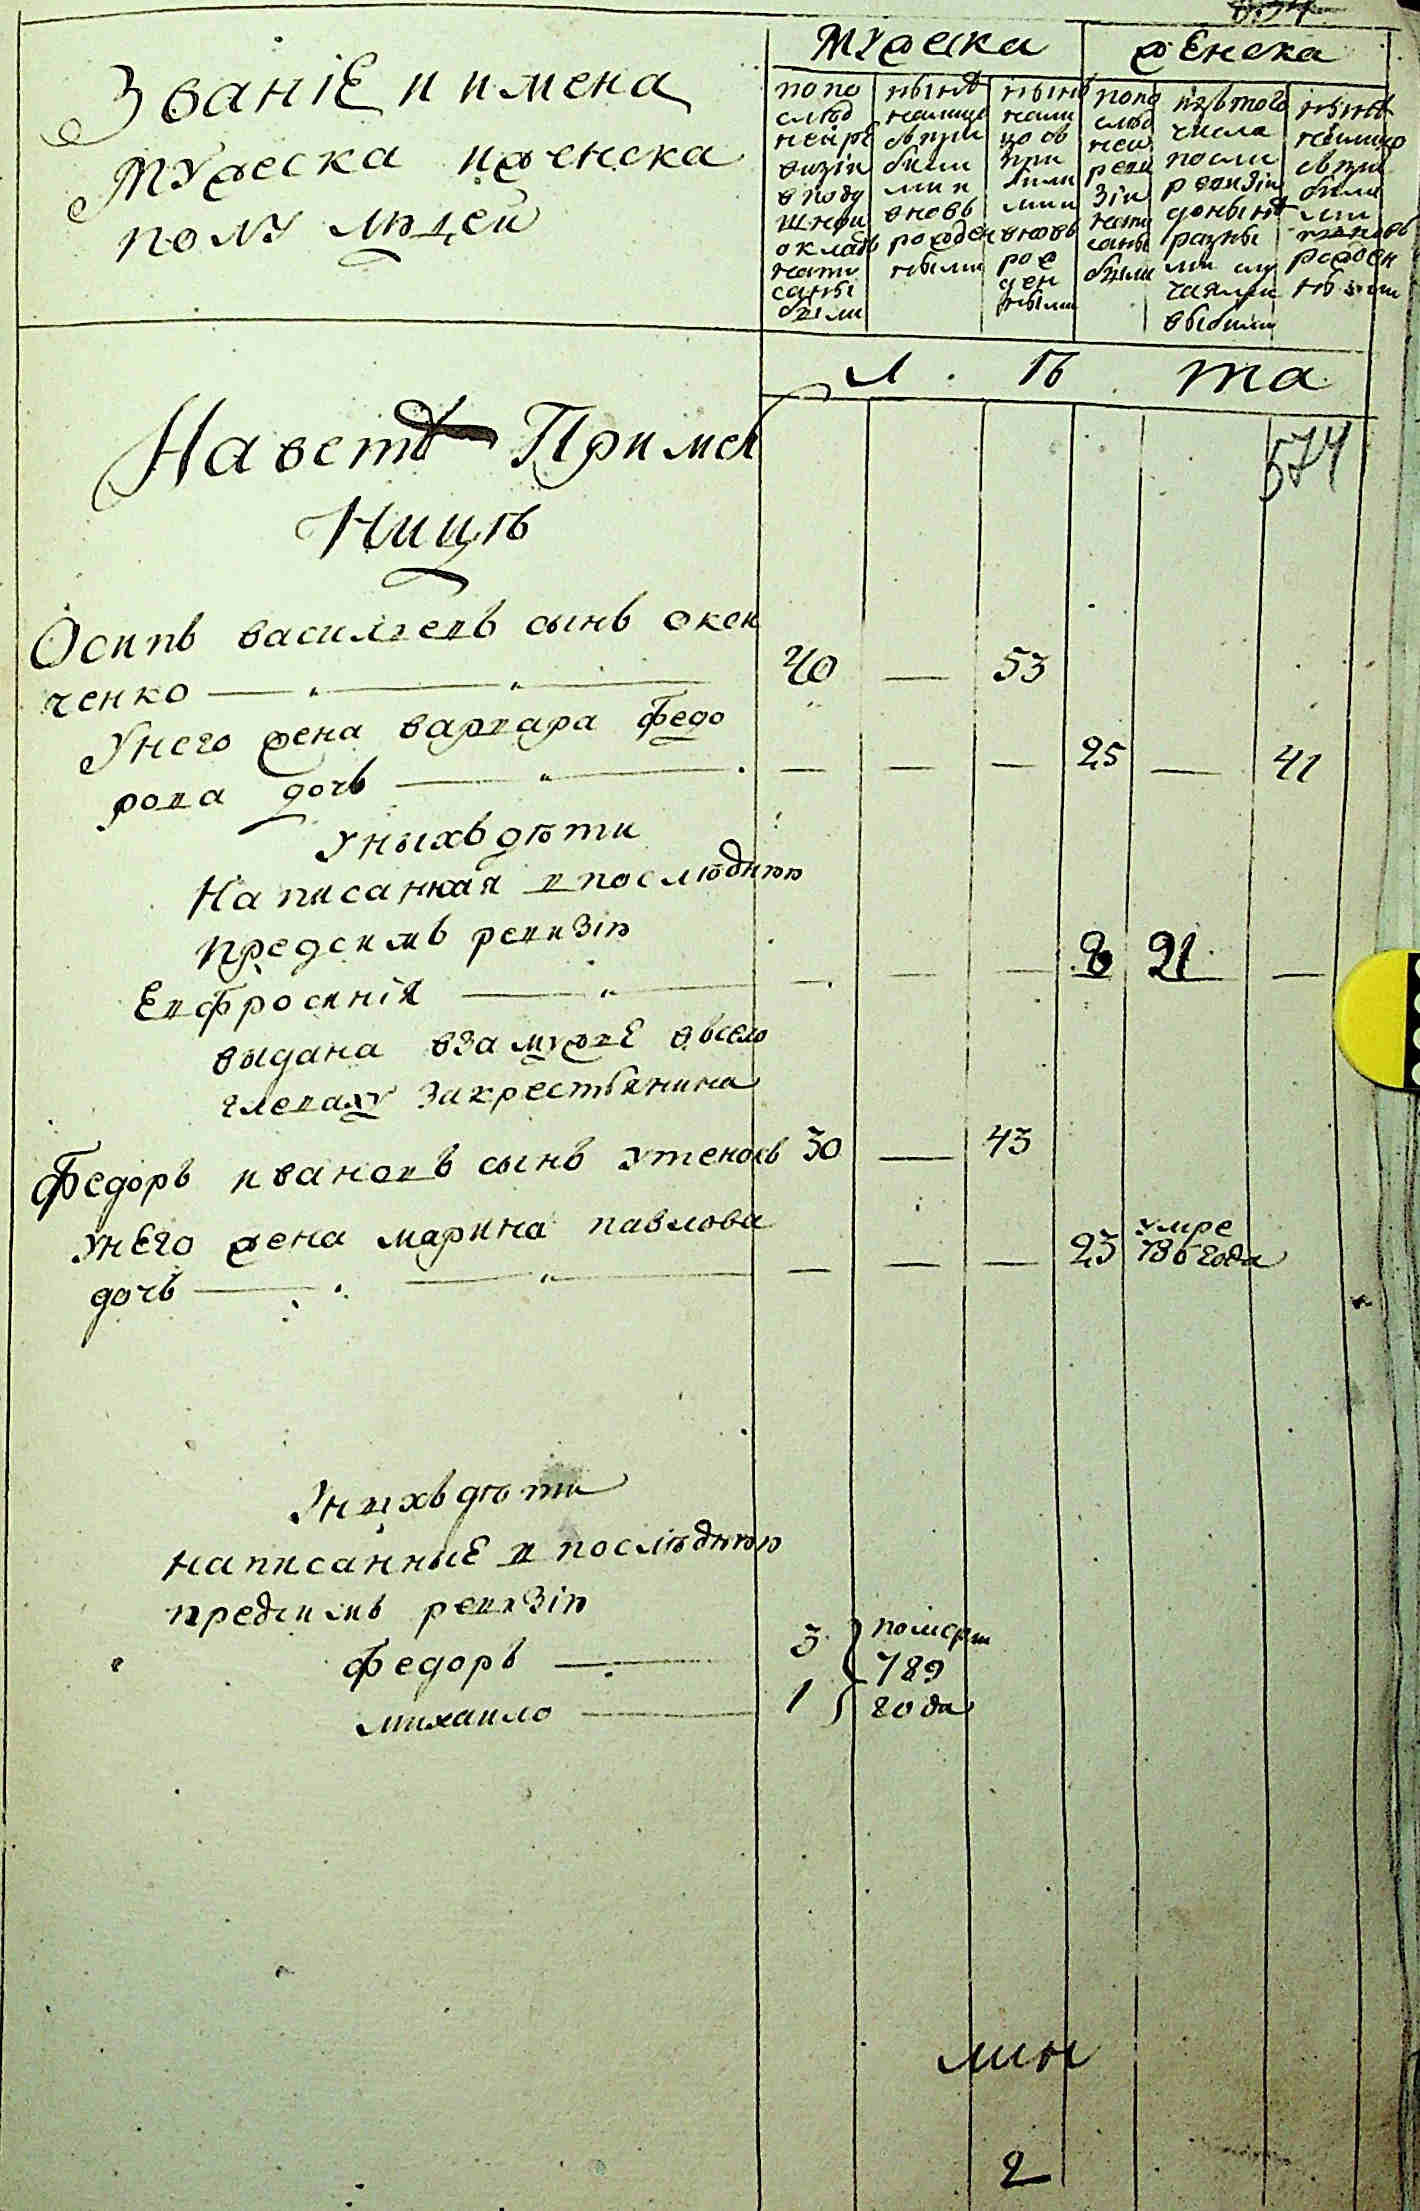 Званіе и имена
мужеска и женска
полу людей
мужеска
женска
по по
след
ней ре
визіи
в поду
шном
окладе
напи
саны
были
ныне
налице
с при
были
ми и
вновь
рожден
ными
ныне
нали
цо с
при
были
ми и
вновь
рож
ден
ными
по по
след
ней
реви
зіи
напи
саны
были
изъ того
числа
после
ревизіи
до ныне
разны
ми слу
чаями
выбыли
ныне
налицо
с при
были
ми
и вновь
рожден
ными
л ѣ та
574
На веть Примея
Ницѣ
Осипъ василіевъ сынъ оксен
ченко 40 — 53
У него жена варвара федо
рова дочь — — — 25 — 41
У ныхъ дѣти
Написанная в последнюю
предсимъ ревизію
Евфросинія — — — 8 21 —
выдана взамуже в село
глеваху за крестьянина
Федоръ ивановъ сынъ 30 — 43
У него жена марина павлова
дочь — — — 23 умре
786 года
У ныхъ дѣти
написанные в послѣднюю
предсимъ ревизію
Федоръ 3 померли
789
михаило 1 года
2